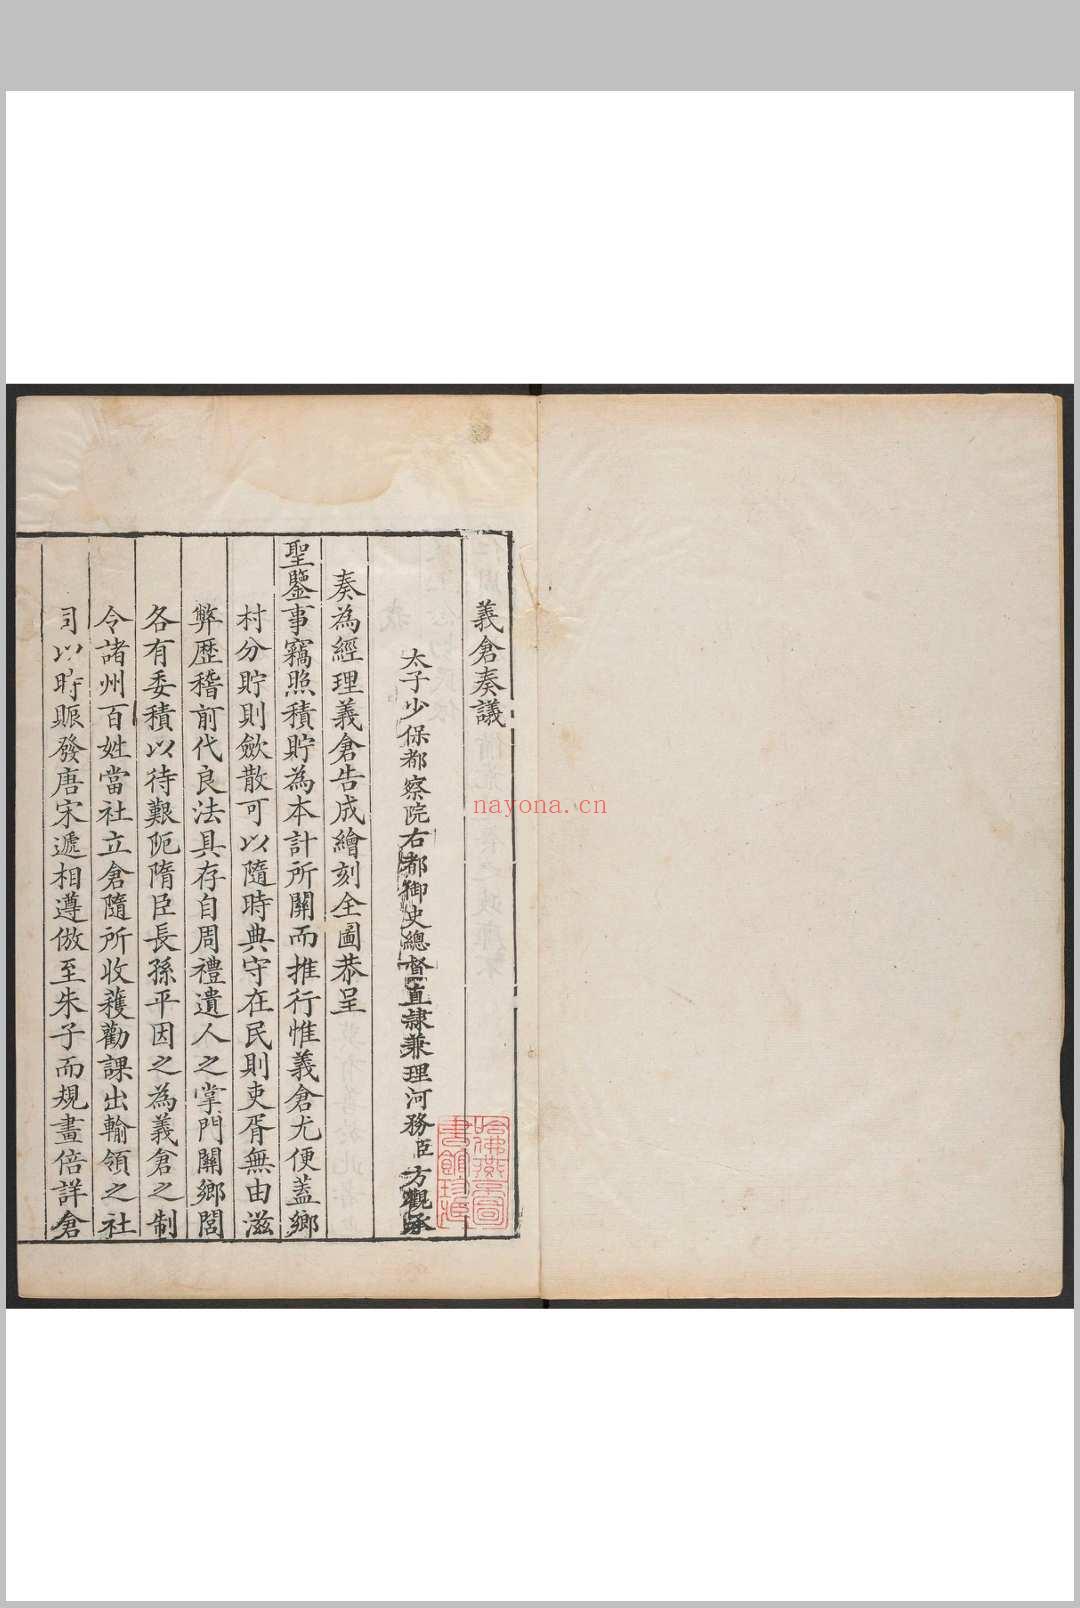 義倉奏議
太子少保都察院右都御史總督直隸兼理河務臣方觀承
奏為經理義倉告成繪刻全圖恭呈
聖鑒事竊照積貯為本計所關而推行惟義倉尤便蓋鄉
村分貯則斂散可以隨時典守在民則吏胥無由滋
弊歷稽前代良法具存自周禮遺人之掌門關鄉閭
各有委積以待艱阨隋臣長孫平因之為義倉之制
令諸州百姓當社立倉隨所收穫勸課出輸領之社
司以時賑發唐宋遞相遵倣至朱子而規畫倍詳倉
哈佛燕京圖書館珍藏
nayona.cn